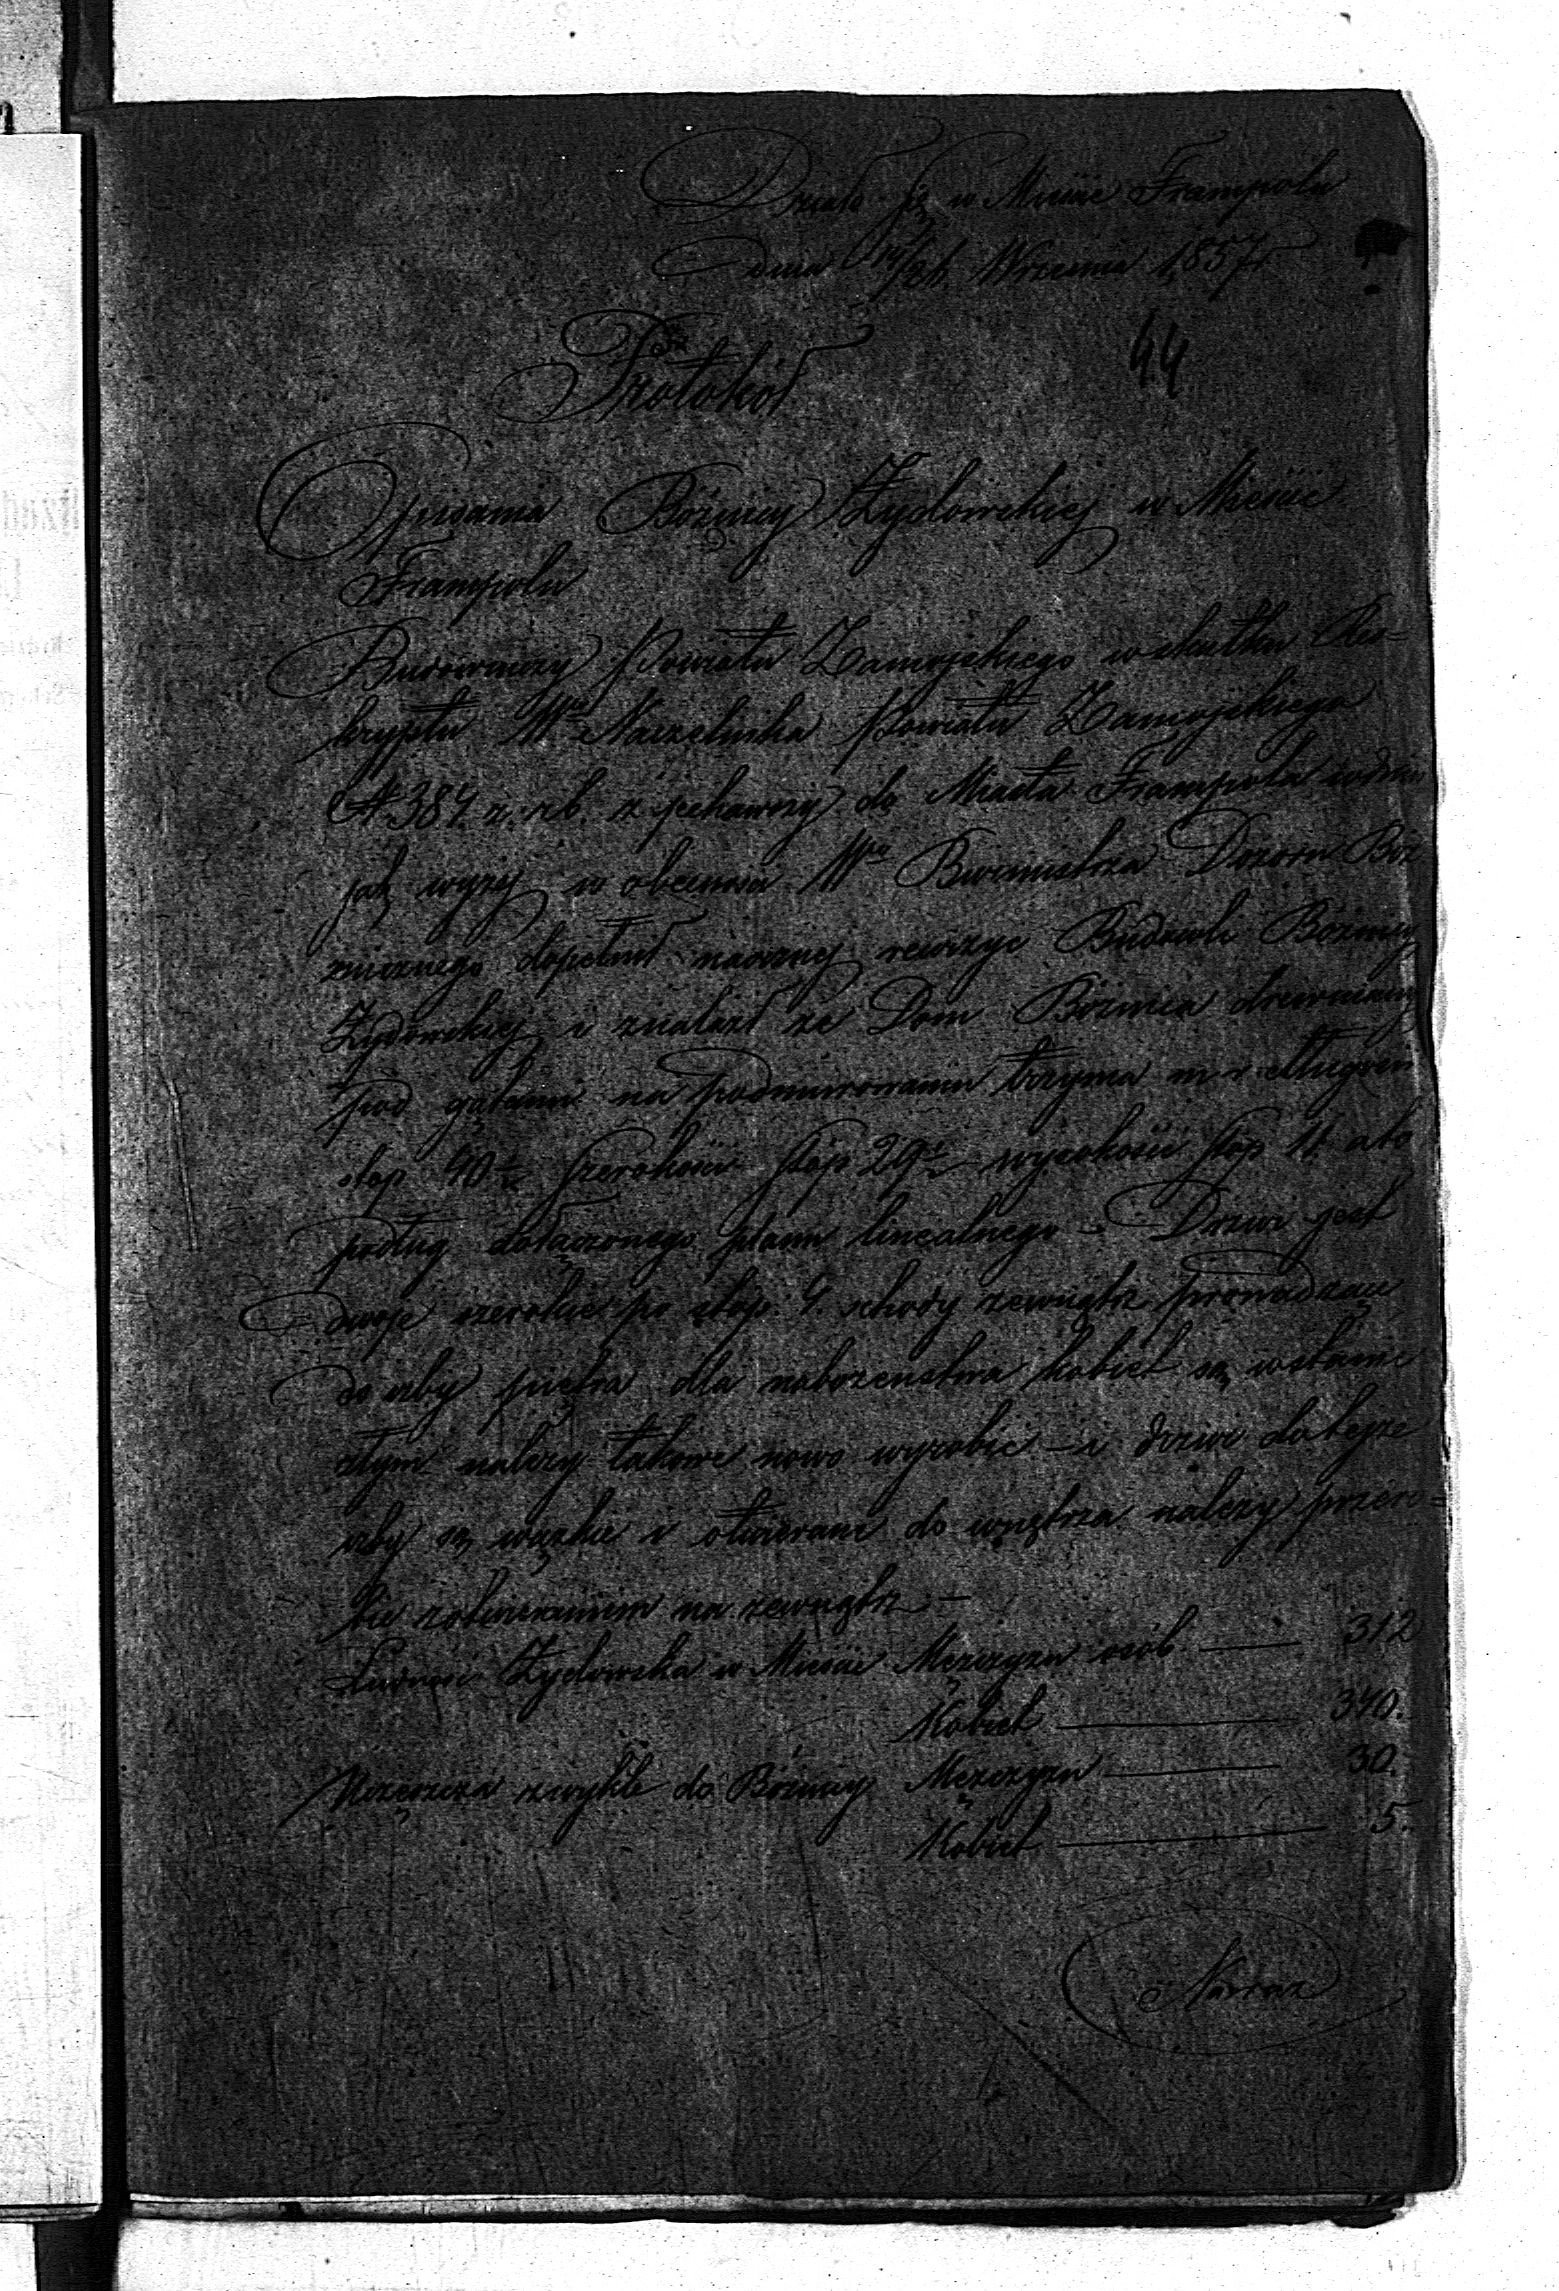 Działo się w Mieście Frampolu
dnia 12/24 Września 1857 r
44
Protokół
Opisania Bóżnicy Żydowskiej w Mieście
Frampolu
Budowniczy Powiatu Zamojskiego w skutku Res=
kryptu Wgo Naczelnika Powiatu Zamojskiego
N 384 z r. b. zjechawszy do Miasta Frampola w dniu
jak wyżej w obecności Wgo Burmistrza Dozoru Boż
niczego dopełnił naocznej rewizye Budowli Bożnicy
Żydowskiej i znalazł że Dom Bożnica drewniany
pod gątami na podmurowaniu trzyma długości
stop 40½ szerokości stóp 29½ wysokości stóp 11 a to
podług dołączonego planu linealnego – Drzwi jest
dwoje szerokie po stop 4 schody zewnątrz prowadzące
do izby piętra dla nabożeństwa kobiet są w stanie
złym należy takowe nowo wyrobić – i drzwi do tejże
izby są wązkie i otwierane do wnętrza należy przero=
bić z otwieraniem na zewnątrz –
Ludność Żydowska w Mieście Męzczyzn osób — 312
Kobiet — 340.
Uczęszcza zwykle do Bóżnicy Męzczyzn — 30.
Kobiet — 5.